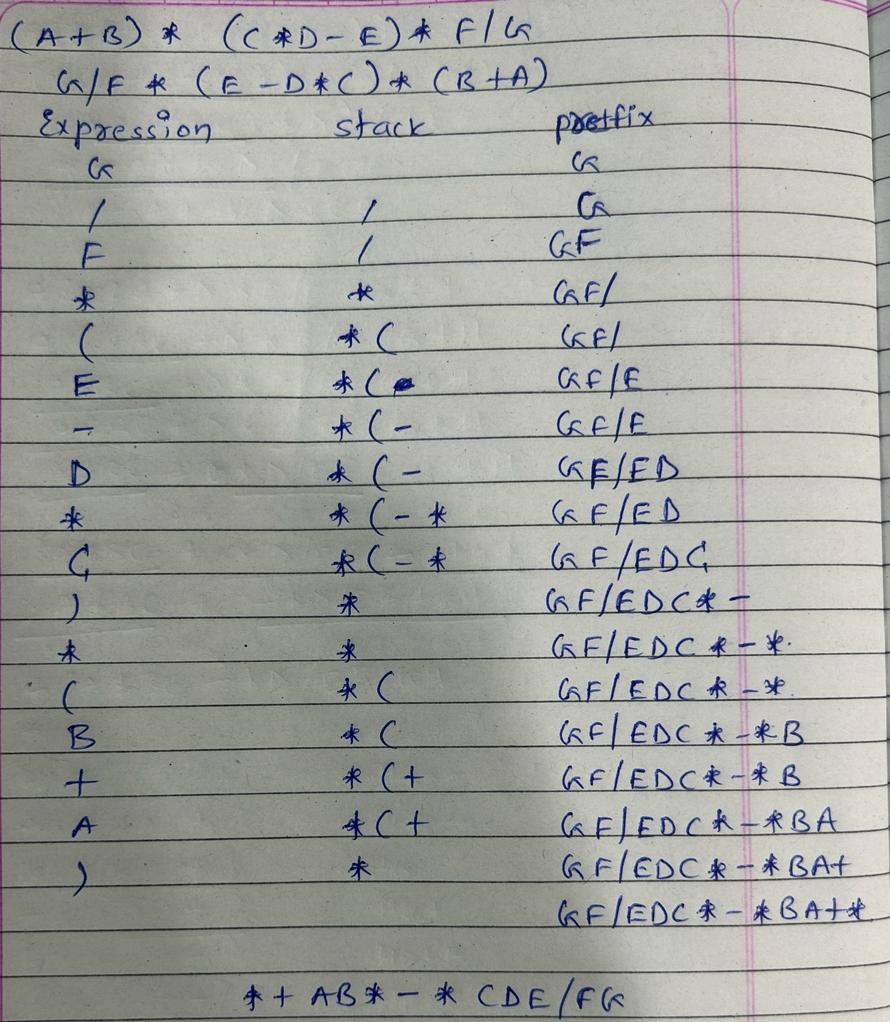 (A+B) * (C*D-E)* F/G
G/F * (E-D*C)* (B+A)
Expression stack prefix
G G
/ / G
F / GF
* * GF/
( *( GF/
E *( GF/E
- *(- GF/E
D *(- GF/ED
* *(-* GF/ED
C *(-* GF/EDC
) * GF/EDC*-
* * GF/EDC*-*.
( *( GF/EDC*-*.
B *( GF/EDC*-*B
+ *(+ GF/EDC*-*B
A *(+ GF/EDC*-*BA
) * GF/EDC*-*BA+
GF/EDC*-*BA+*
*+AB*-*CDE/FG